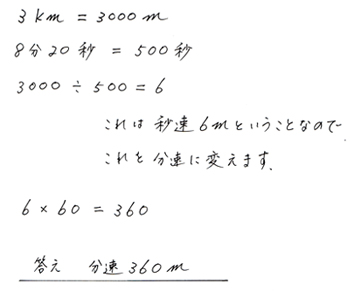 3 km = 3000 m
8分20秒 = 500秒
3000 ÷ 500 = 6
これは 秒速 6m ということなので
これを 分速に変えます。
6 × 60 = 360
答え 分速 360 m